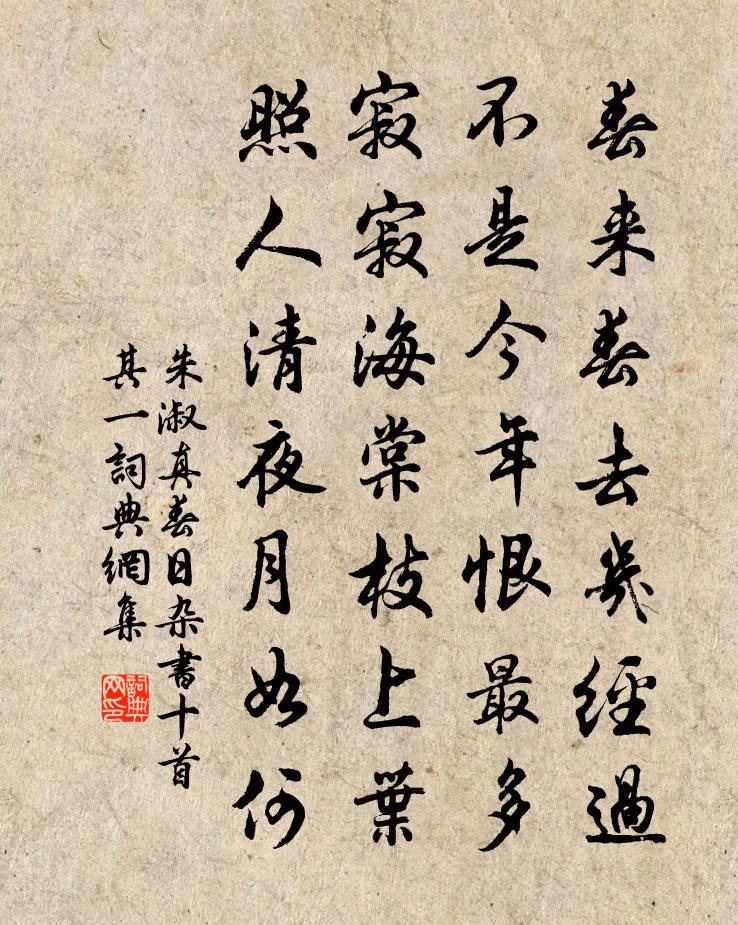 春来春去幾經過
不是今年恨最多
寂寂海棠枝上葉
照人清夜月如何
朱淑真春日杂書十首
其一詞典網集
詞典网印